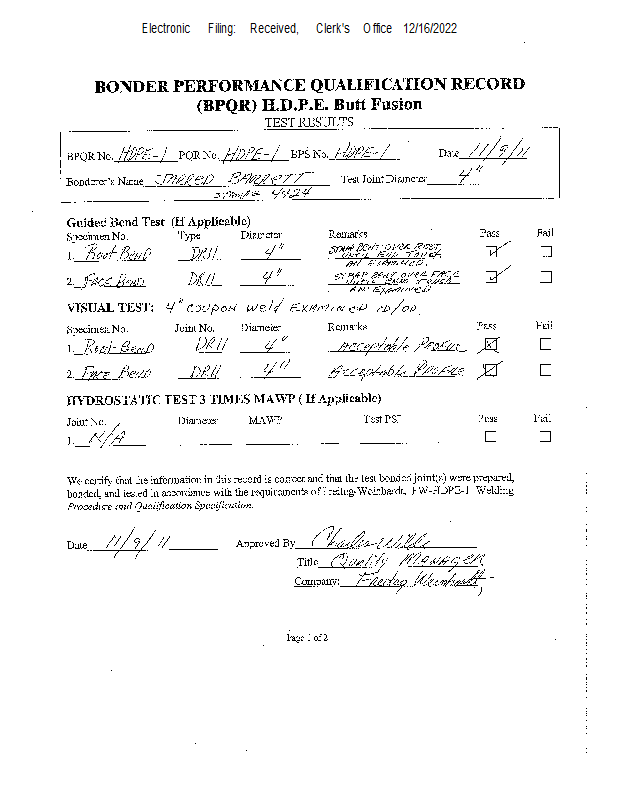 Electronic Filing: Received, Clerk's Office 12/16/2022
BONDER PERFORMANCE QUALIFICATION RECORD
(BPQR) H.D.P.E. Butt Fusion
TEST RESULTS
BPQR No. HDPE-1 PQR No. HDPE-1 BPS No. HDPE-1 Date 11/9/11
Bonderer's Name JARRED BARRETT Test Joint Diameter 4"
STAMP# 4424
Guided Bend Test (If Applicable)
Specimen No. Type Diameter Remarks Pass Fail
1. Root Bend DR11 4" STRAP BENT OVER ROOT UNTIL END TOUCH AN EXAMINED.
2. FACE Bend DR11 4" STRAP BENT OVER FACE UNTIL ENDS TOUCH AN EXAMINED
VISUAL TEST: 4" COUPON Weld EXAMINED ID/OD.
Specimen No. Joint No. Diameter Remarks Pass Fail
1. Root-Bend DR11 4" Acceptable PROFILE
2. FACE Bend DR11 4" Acceptable PROFILE
HYDROSTATIC TEST 3 TIMES MAWP ( If Applicable)
Joint No. Diameter MAWP Test PSI Pass Fail
1. N/A
We certify that the information in this record is correct and that the test bonded joint(s) were prepared,
bonded, and tested in accordance with the requirements of Freitag-Weinhardt, FW-HDPE-1 Welding
Procedure and Qualification Specification.
Date 11/9/11 Approved By Charles
Title Quality MANAGER
Company: Freitag Weinhardt
Page 1 of 2